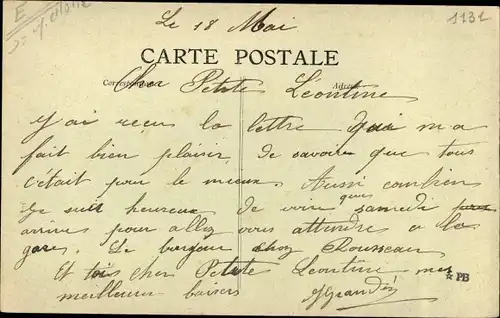 1131
Le 18 Mai
CARTE POSTALE
Cher Petite Léontine
J'ai reçu la lettre qui m'a
fait bien plaisir de savoir que tous
c'était pour le mieux. Aussi combien
je suit heureux de voir que samedi
arrive pour allez vous attendre a la
gare. Le bonjour chez Rousseau
Et toi cher Petite Léontine mes
meilleur baisers
PB